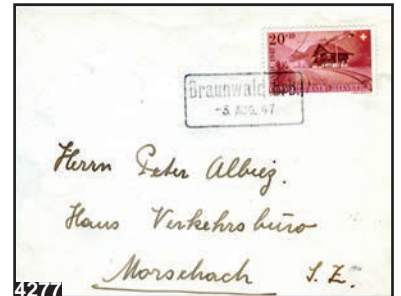 20+10
Braunwald Brb.
-3. AUG. 47
Herrn Peter Albiez.
Haus Verkehrsbüro
Morschach S. Z.
4277